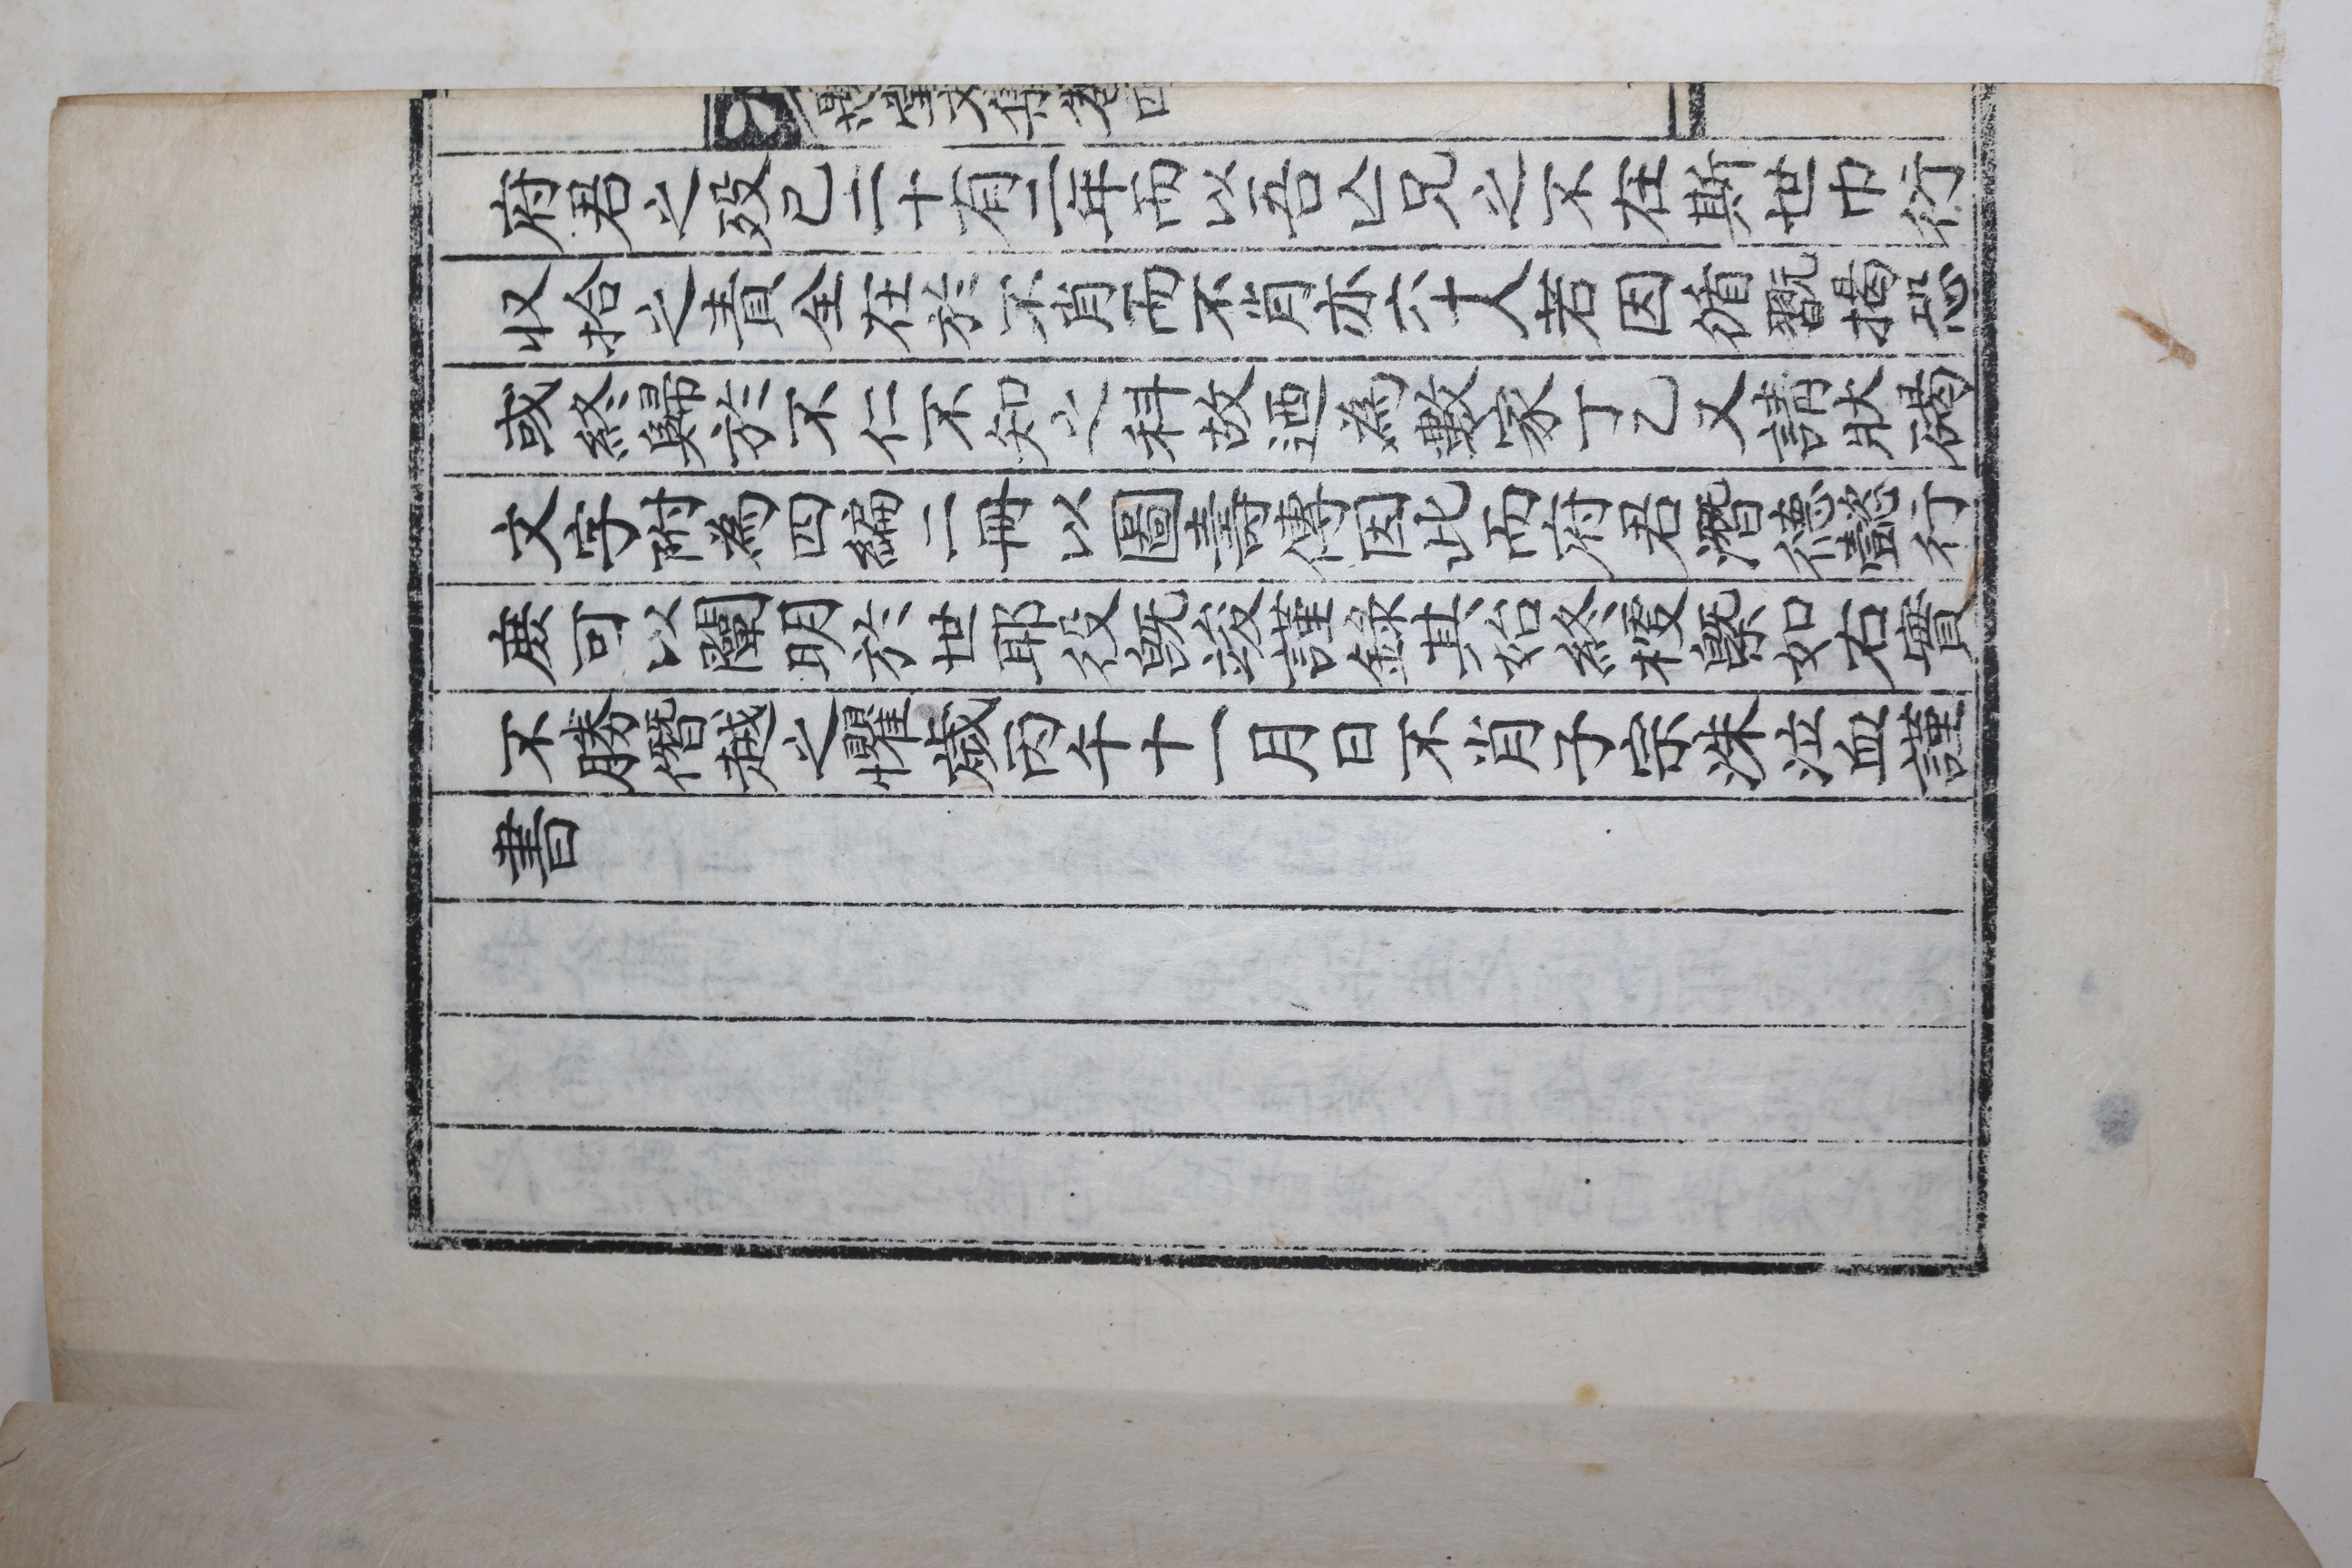 府君之歿已二十有三年而以吾亾兄之不在斯世巾衍
收拾之責全在於不肖而不肖亦六十人若因循翫揭恐
或終歸於不仁不知之科故迺為數家丁乙又請狀碣
文字附為四編二冊以圖壽傳因此而府君潛德懿行
庶可以闡明於世耶役既竣謹錄其始終梗槩如右實
不勝僭越之懼歲丙午十一月日不肖子宗洙泣血謹
書